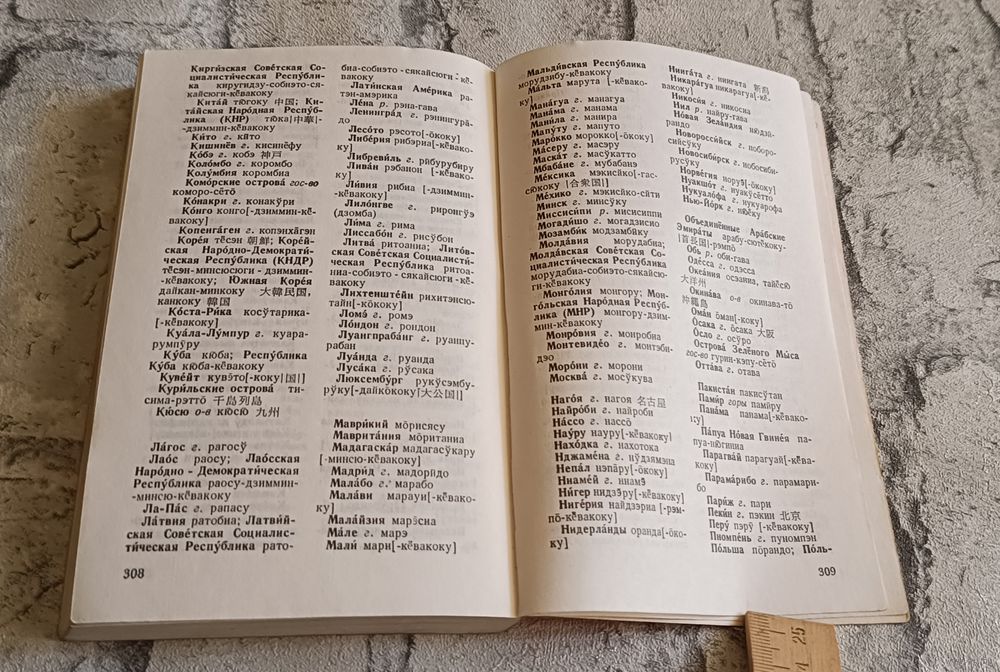 Кирги́зская Сове́тская Со-
циалисти́ческая Респу́бли-
ка киругидзу-собиэто-ся-
кайсюги-кёвакоку
Кита́й тю̄гоку 中国; Ки-
та́йская Наро́дная Респу́б-
лика (КНР) тю̄ка[中華]-
-дзиммин-кёвакоку
Ки́то г. кито
Кишинёв г. кисинёфу
Ко́бэ г. ко̄бэ 神戸
Коло́мбо г. коромбо
Колу́мбия коромбиа
Комо́рские острова́ гос-во
коморо-сёто̄
Ко́накри г. конакўри
Ко́нго конго[-дзиммин-кё-
вакоку]
Копенга́ген г. копэнха̄гэн
Коре́я тё̄сэн 朝鮮; Коре́й-
ская Наро́дно-Демократи́-
ческая Респу́блика (КНДР)
тё̄сэн-минсюсюги - дзиммин-
-кёвакоку; Ю́жная Коре́я
дайкан-минкоку 大韓民国,
канкоку 韓国
Ко́ста-Ри́ка косўтарика-
[-кёвакоку]
Куа́ла-Лу́мпур г. куара-
румпўру
Ку́ба кюба; Респу́блика
Ку́ба кюба-кёвакоку
Куве́йт кувэ̄то[-коку|国|]
Кури́льские острова́ ти-
сима-рэтто̄ 千島列島
Кю́сю о-в кю̄сю̄ 九州
Ла́гос г. рагосў
Лао́с раосу; Лао́сская
Наро́дно - Демократи́ческая
Респу́блика раосу-дзиммин-
-минсю-кёвакоку
Ла-Па́с г. рапасу
Ла́твия ратобиа; Латви́й-
ская Сове́тская Социалис-
ти́ческая Респу́блика рато-
308
биа-собиэто - сякайсюги - кё-
вакоку
Лати́нская Аме́рика ра-
тэн-амэрика
Ле́на р. рэна-гава
Ленингра́д г. рэнингура̄-
до
Лесо́то рэсото[-о̄коку]
Либе́рия рибэриа[-кёвако-
ку]
Либреви́ль г. рибурубиру
Лива́н рэбанон [-кёвако-
ку]
Ли́вия рибиа [-дзиммин-
-кёвакоку]
Лило́нгве г. риронгўэ
(дзомба)
Ли́ма г. рима
Лиссабо́н г. рисўбон
Литва́ ритоаниа; Лито́в-
ская Сове́тская Социалисти́-
ческая Респу́блика ритоа-
ниа-собиэто-сякайсюги-кё-
вакоку
Лихтенште́йн рихитэнсю-
тайн[-ко̄коку]
Ломэ́ г. ромэ
Ло́ндон г. рондон
Луангпраба́нг г. руампу-
рабан
Луа́нда г. руанда
Луса́ка г. рўсака
Люксембу́рг рукўсэмбу-
рўку[-дайко̄коку|大公国|]
Маври́кий мо̄рисясу
Маврита́ния мо̄ританиа
Мадагаска́р мадагасўкару
[-минсю-кёвакоку]
Мадри́д г. мадоридо
Мала́бо г. марабо
Мала́ви марауи[-кёвако-
ку]
Мала́йзия марэ̄сиа
Ма́ле г. марэ
Мали́ мари[-кёвакоку]
Мальди́вская Респу́блика
морудзибу-кёвакоку
Ма́льта марута [-кёвако-
ку]
Мана́гуа г. манагуа
Мана́ма г. манама
Мани́ла г. манира
Мапу́ту г. мапуто
Маро́кко морокко[-о̄коку]
Ма́серу г. масэру
Маска́т г. масўкатто
Мбаба́не г. мубабанэ
Ме́ксика мэкисико[-гас-
сю̄коку |合衆国|]
Ме́хико г. мэкисико-сити
Минск г. минсўку
Миссиси́пи р. мисисиппи
Могади́шо г. могадзисио
Мозамби́к модзамбйку
Молда́вия морудабиа;
Молда́вская Сове́тская Со-
циалисти́ческая Респу́блика
морудабиа-собиэто-сякайсю-
ги-кёвакоку
Монго́лия монгору; Мон-
го́льская Наро́дная Респу́бли-
ка (МНР) монгору-дзим-
мин-кёвакоку
Монро́вия г. монробиа
Монтевиде́о г. монтэби-
дэо
Моро́ни г. морони
Москва́ г. мосўкува
Наго́я г. нагоя 名古屋
Найро́би г. найроби
На́ссо г. нассо̄
Нау́ру науру[-кёвакоку]
Нахо́дка г. находотока
Нджаме́на г. нўдзямэна
Непа́л нэпа̄ру[-о̄коку]
Ниаме́й г. ниамэ
Ни́гер нидзэ̄ру[-кёвакоку]
Ниге́рия найдзэриа [-рэм-
по̄-кёвакоку]
Нидерла́нды оранда[-о̄ко-
ку]
Нии́гата г. ниигата 新潟
Никара́гуа никарагуа[-кё-
вакоку]
Никоси́я г. никосиа
Нил р. найру-гава
Но́вая Зела́ндия ню̄дзи-
рандо
Новоросси́йск г. новоро-
сийсўку
Новосиби́рск г. нобосиби-
русўку
Норве́гия норуэ̄[-о̄коку]
Нуакшо́т г. нуакўсётто
Нукуало́фа г. нукуарофа
Нью-Йо́рк г. ню̄ё̄ку
Объединённые Ара́бские
Эмира́ты арабу-сютё̄коку-
|首長国|-рэмпо̄
Обь р. оби-гава
Оде́сса г. одэсса
Океа́ния осэаниа, тайё̄сю̄
大洋州
Окина́ва о-в окинава-то̄
沖縄島
Ома́н о̄ман[-коку]
О́сака г. о̄сака 大阪
О́сло г. осўро
Острова́ Зелёного Мы́са
гос-во гурин-кэпу-сёто̄
Отта́ва г. отава
Пакиста́н пакисўтан
Пами́р горы памйру
Пана́ма панама[-кёвако-
ку]
Па́пуа Но́вая Гвине́я па-
пуа-ню̄гиниа
Парагва́й парагуай[-кёва-
коку]
Парама́рибо г. парамари-
бо
Пари́ж г. пари
Пеки́н г. пэкин 北京
Перу́ пэрў [-кёвакоку]
Пномпе́нь г. пуномпэн
По́льша по̄рандо; По́ль-
309
25